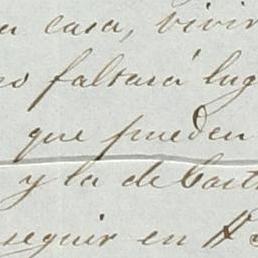 a casa, vivir
no faltará lug
que pueden
y la de Cast
seguir en